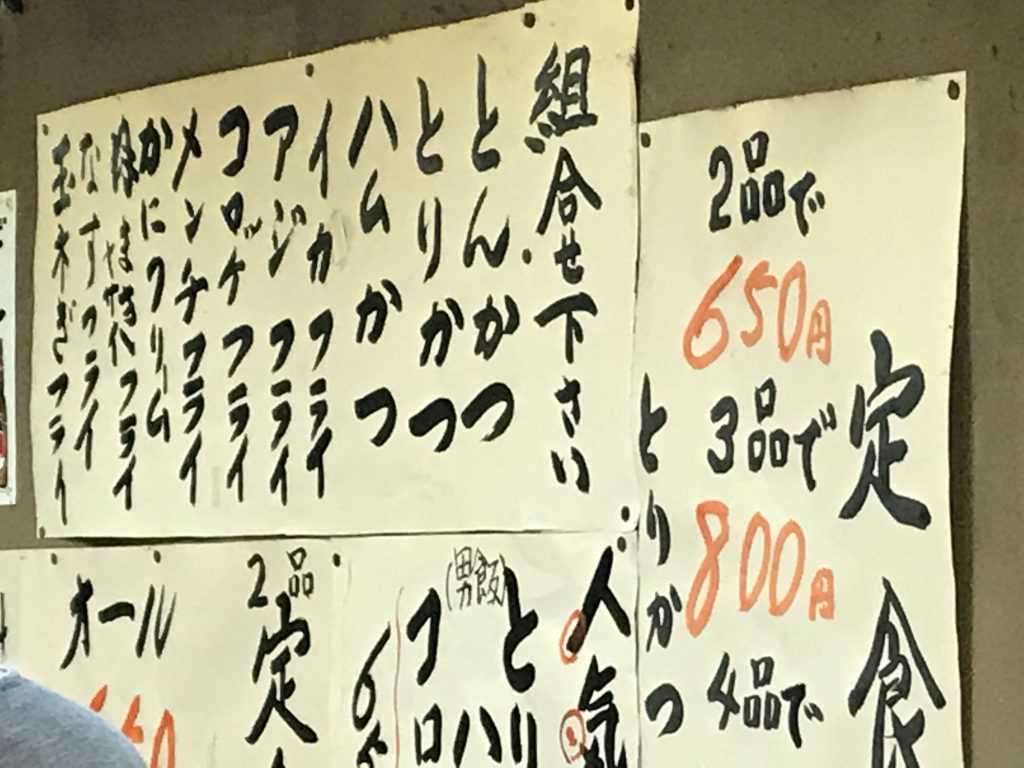 定食
2品で
650円
3品で
800円
4品で
とりかつ
組合せ下さい
とんかつ
とりかつ
ハムかつ
イカフライ
アジフライ
コロッケフライ
メンチフライ
かにクリーム
はすフライ
なすフライ
玉ネギフライ
人気
とり
ハ
(男飯)
コロ
65
2品
定
オール